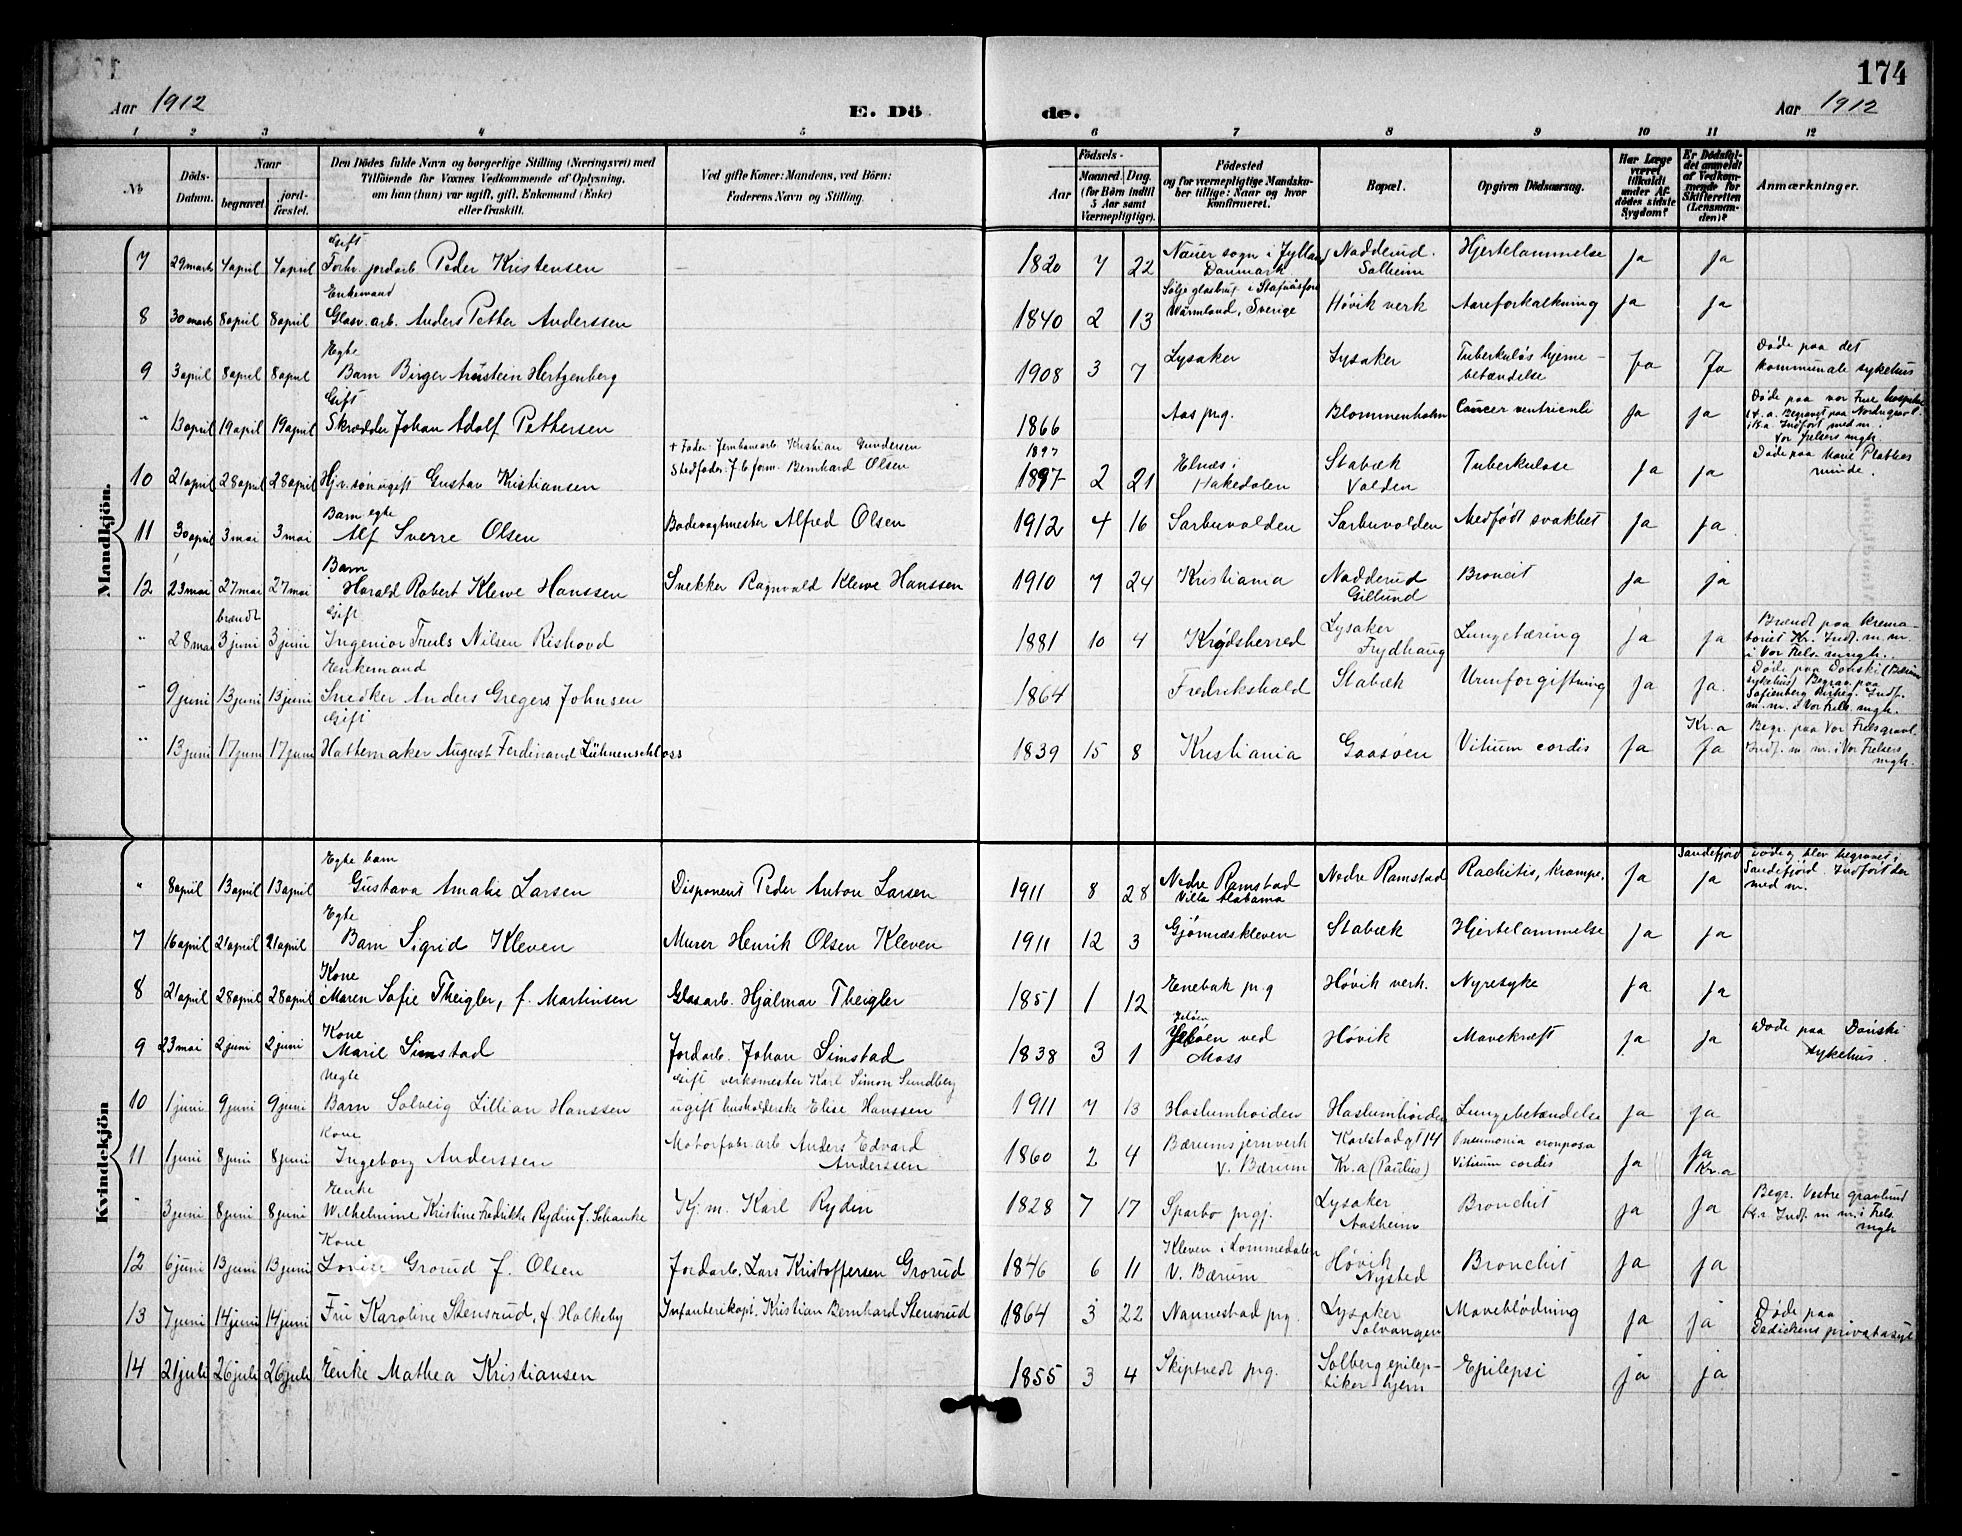 174
Aar 1912
E. Dö
de.
Aar 1912
1 2 3 4 5 6 7 8 9 10 11 12
No
Döds-
Datum.
Naar
begravet
jord-
fæstet.
Den Dödes fulde Navn og borgerlige Stilling (Næringsvei) med
Tilföiende for Voxnes Vedkommende af Oplysning,
om han (hun) var ugift, gift, Enkemand (Enke)
eller fraskilt.
Ved gifte Koner: Mandens, ved Börn:
Faderens Navn og Stilling.
Födsels-
Aar
Maaned. Dag.
(for Börn indtil
5 Aar samt
Værnepligtige).
Födested
og for værnepligtige Mandska-
ber tillige: Naar og hvor
konfirmeret.
Bopæl.
Opgiven Dödsaarsag.
Har Læge
været
tilkaldt
under Af-
dödes sidste
Sygdom?
Er Dödsfal-
det anmeldt
af Vedkom-
mende for
Skifteretten
(Lensman-
den)?
Anmærkninger.
Mandkjön.
Gift
7 29 marts 4 april 4 april Forhv. jordarb. Peder Kristensen 1820 7 22 Nauer sogn i Jylland Danmark Nadderud. Solheim Hjertelammelse Ja Ja
Enkemand
8 30 marts 8 april 8 april Glasv. arb. Anders Petter Anderssen 1840 2 13 glasbruk i Wärmland, Sverige Høvik verk Aareforkalkning Ja Ja
Egte
9 3 april 8 april 8 april Barn Birger Arnstein Hertzenberg 1908 3 7 Lysaker Lysaker Tuberkuløs hjernebetændelse Ja Ja Døde paa det kommunale sykehus
Gift
" 13 april 19 april 19 april Skrædder Johan Adolf Pettersen 1866 Aas prg. Blommenholm Cancer ventriculi Ja Ja Døde paa vor Frue hospital Kr. a. Begravet paa Nordre gravl. i Kr.a Indført med m. i Vor Frelsers mgh.
+ Fader: Jernbanearb. Kristian Gundersen
1897
10 21 april 28 april 28 april Hjv. søn ugift Gustav Kristiansen Stedfader: Jb. form. Bernhard Olsen 1897 2 21 Elnæs i Hakedalen Stabæk Volden Tuberkulose Ja Ja Døde paa Marie Plathes minde.
Barn egte
11 30 april 3 mai 3 mai Alf Sverre Olsen Badevagtmester Alfred Olsen 1912 4 16 Sarbuvolden Sarbuvolden Medfødt svakhet Ja Ja
Barn
12 23 mai 27 mai 27 mai Harald Robert Klewe Hanssen Snekker Ragnvald Klewe Hanssen 1910 7 24 Kristiania Nadderud Gillund Broncit Ja Ja
brændt
Gift
" 28 mai 3 juni 3 juni Ingeniør Truls Nilsen Rishovd 1881 10 4 Krødsherred Lysaker Frydhaug Lungetæring Ja Ja Brændt paa krematoriet Kr. Indf. m. m. i Vor Frels. mgh.
Enkemand
" 9 juni 13 juni 13 juni Snedker Anders Gregers Johnsen 1864 Fredrikshald Stabæk Urinforgiftning Ja Ja. Døde paa Dønski (Bærum sykehus) Begrav. paa Sofienberg kirkeg. Indf. m. m. i Vor Frels. mgh.
Gift
" 13 juni 17 juni 17 juni Hattemaker August Ferdinand Lühnenschloss 1839 15 8 Kristiania Gaasøen Vitium cordis Ja Kr.a Ja Begr. paa Vor Frels gravl. Indf. m. m. i Vor Frelsers mgh.
Kvindekjön
Egte barn
" 8 april 13 april 13 april Gustava Amalie Larsen Disponent Peder Anton Larsen 1911 8 28 Nedre Ramstad Villa Alabama Nedre Ramstad Rachitis, krampe. Ja Sandefjord Ja Døde og blev begravet i Sandefjord. Indført der med m.
Egte
7 16 april 21 april 21 april Barn Sigrid Kleven Murer Henrik Olsen Kleven 1911 12 3 Gjønnæskleven Stabæk Hjertelammelse Ja Ja
Kone
8 21 april 28 april 28 april Maren Sofie Theigler, f. Martinsen Glasarb. Hjalmar Theigler 1851 1 12 Enebak prg Høvik verk. Nyresyke Ja Ja
Kone
9 23 mai 2 juni 2 juni Marie Simstad Jordarb. Johan Simstad 1838 3 1 Jeløen ved Moss Høvik Mavekræft Ja Ja Døde paa Dønski sykehus.
Uegte
Gift verksmester Karl Simon Sundberg
10 1 juni 9 juni 9 juni Barn Solveig Lillian Hanssen ugift husholderske Elise Hanssen 1911 7 13 Haslumheiden Haslumheiden Lungebetændelse Ja Ja
Kone
11 1 juni 8 juni 8 juni Ingeborg Anderssen Motorfabr. arb Anders Edvard Anderssen 1860 2 4 Bærums jernverk V. Bærum Karlstadgt 14 Kr. a (Paulus) Pneumonia crouposa Vitium cordis Ja Ja Kr.a
Enke
" 3 juni 8 juni 8 juni Wilhelmine Kristine Fredrikke Rydin f. Schanke Kj.m. Karl Rydin 1828 7 17 Sparbo prgj. Lysaker Aasheim Bronchit Ja Ja Begr. Vestre gravlund Kr. Indf. m m. i Frels mgh
Kone
12 6 juni 13 juni 13 juni Lovise Grorud f. Olsen Jordarb. Lars Kristoffersen Grorud 1846 6 11 Kleven i Lommedalen V. Bærum Høvik Nysted Bronchit Ja Ja
13 7 juni 14 juni 14 juni Fru Karoline Stensrud, f. Holkeby Infanterikapt. Kristian Bernhard Stensrud 1864 3 22 Nannestad prg. Lysaker Solvangen Maveblødning Ja Ja Døde paa Dedickens privatasyl
14 21 juli 26 juli 26 juli Enke Mathea Kristiansen 1855 3 4 Skiptvedt prg. Solberg epileptiker hjem Epilepsi Ja Ja